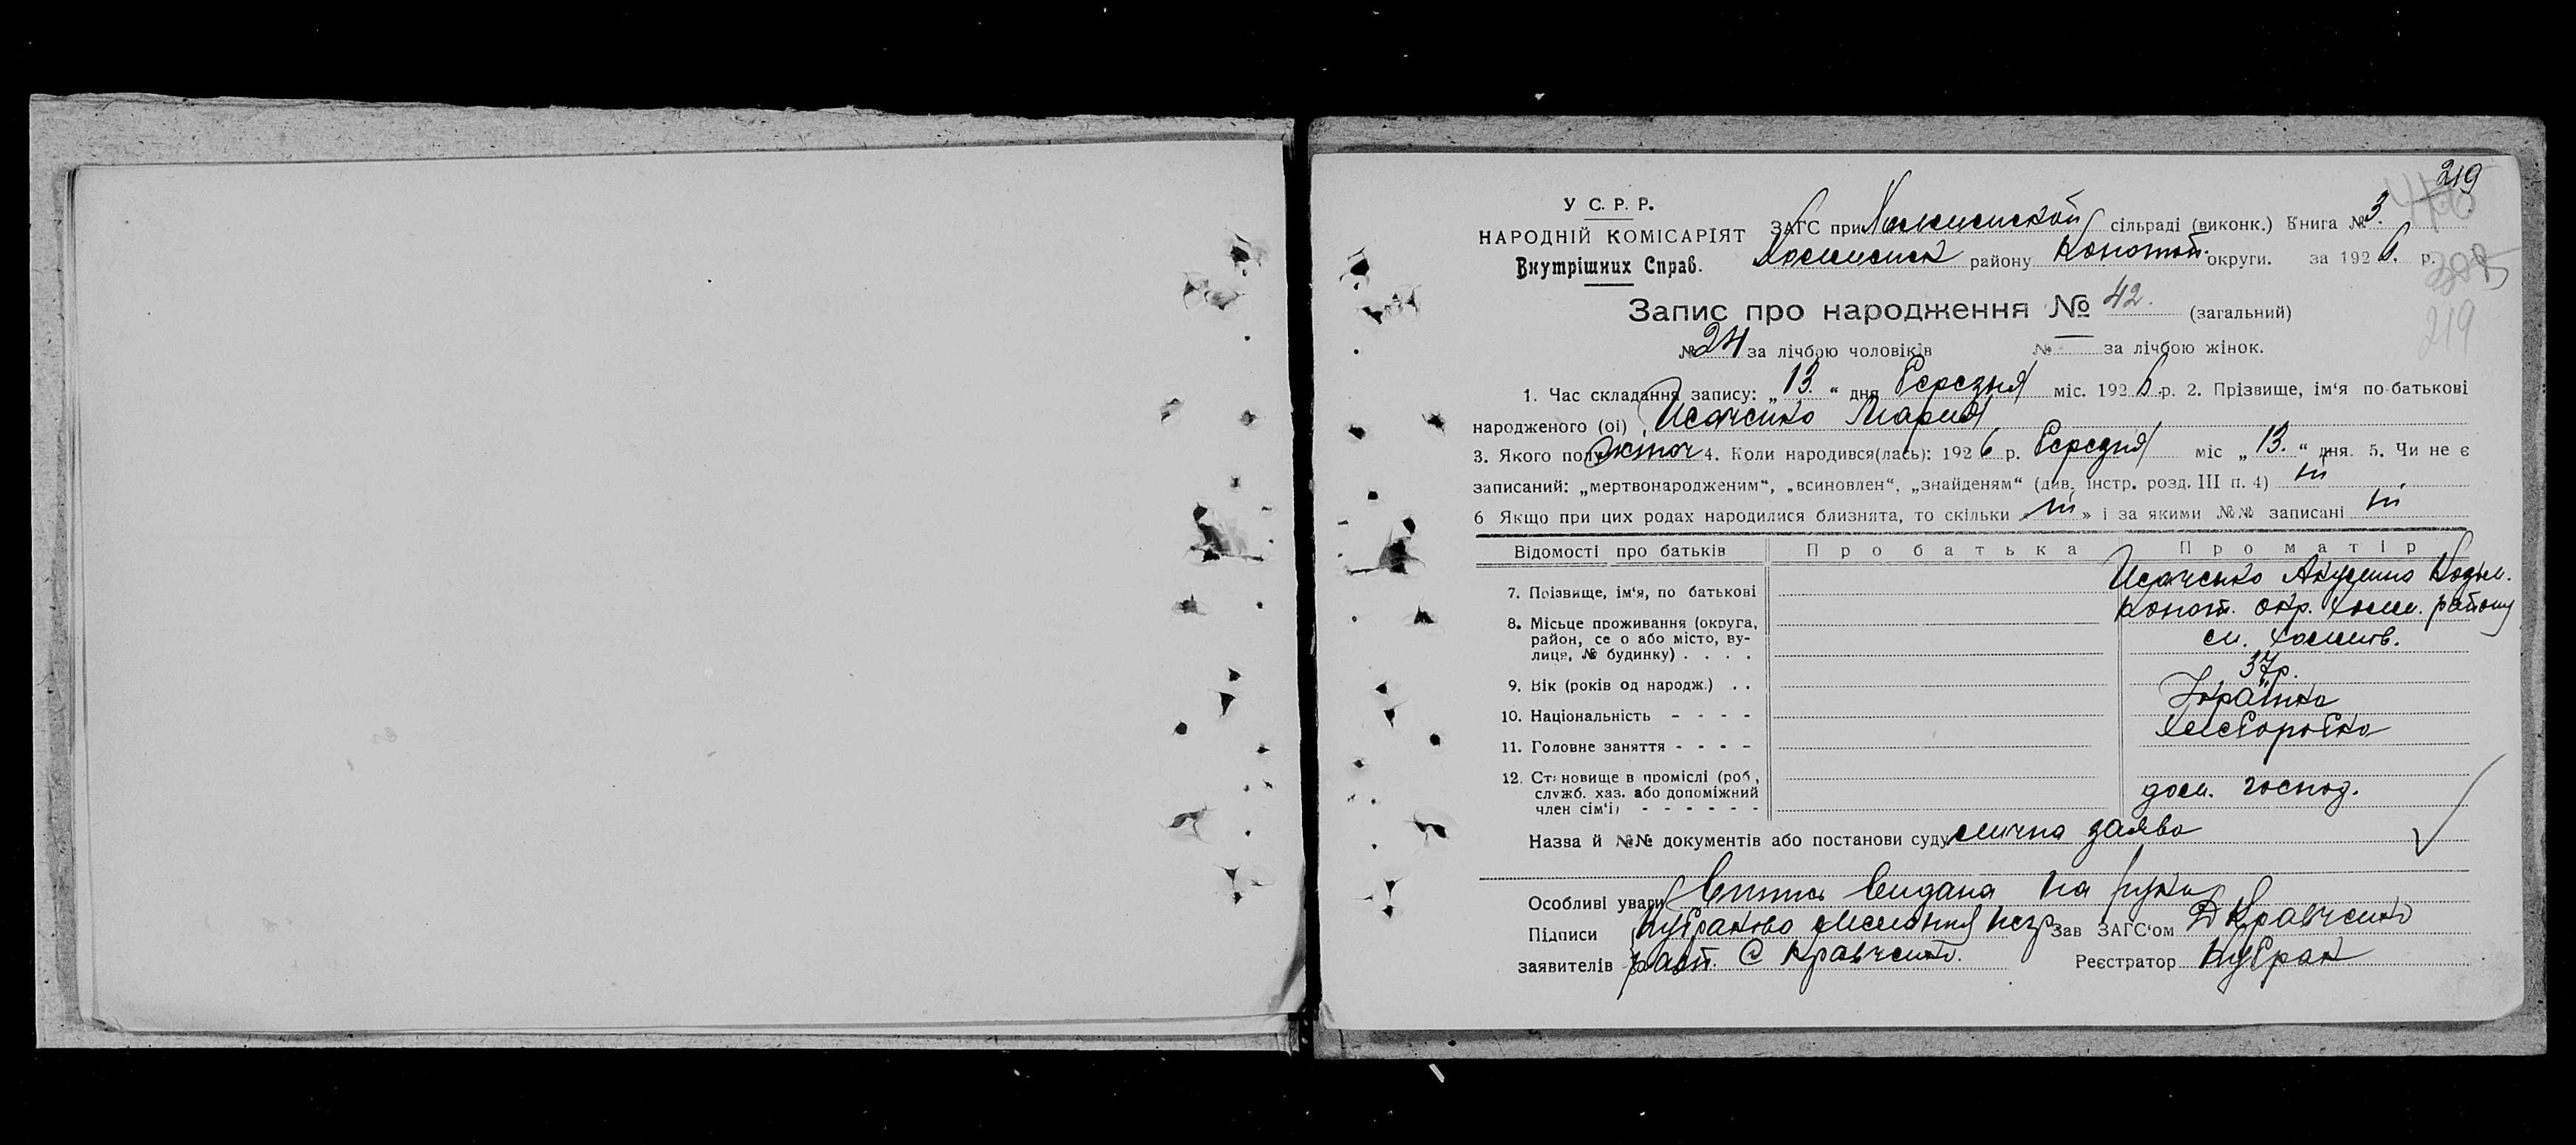 219
У С. Р. Р.
НАРОДНІЙ КОМІСАРІЯТ
Внутрішних Справ.
ЗАГС при сільраді (виконк.) Книга № 3.
району Конотоп. округи. за 1926. р.
305
Запис про народження № 42. (загальний)
219
№ 24 за лічбою чоловіків № — за лічбою жінок.
1. Час складання запису: „13.“ дня Березня міс. 1926 р. 2. Прізвище, ім‘я по-батькові
народженого (ої) Исаченко Мария
3. Якого полу жіноч 4. Коли народився(лась): 1926 р. Березня міс „13.“ дня. 5. Чи не є
записаний: „мертвонародженим“, „всиновлен“, „знайденям“ (див. інстр. розд. III п. 4) ні
6 Якщо при цих родах народилися близнята, то скільки „ні» і за якими №№ записані ні
Відомості про батьків Про батька Про матір
7. Прізвище, ім‘я, по батькові Исаченко Акулина
8. Місьце проживання (округа, район, се о або місто, ву-лиця, № будинку) . . . . Конот. окр. Хмел. району
см. Хмелов.
9. Вік (років од народж.) . . 37р.
10. Національність - - - - Українка
11. Головне заняття - - - - Хлеборобка
12. Становище в промислі (роб., служб. хаз. або допоміжний член сім‘ї) - - - - - - дом. господ.
Назва й №№ документів або постанови суду лична заява
Особливі уваги Випись видана на руки
Підписи Зав ЗАГС‘ом Д Кравченко
заявителів С Кравченко. Реєстратор Кубрак